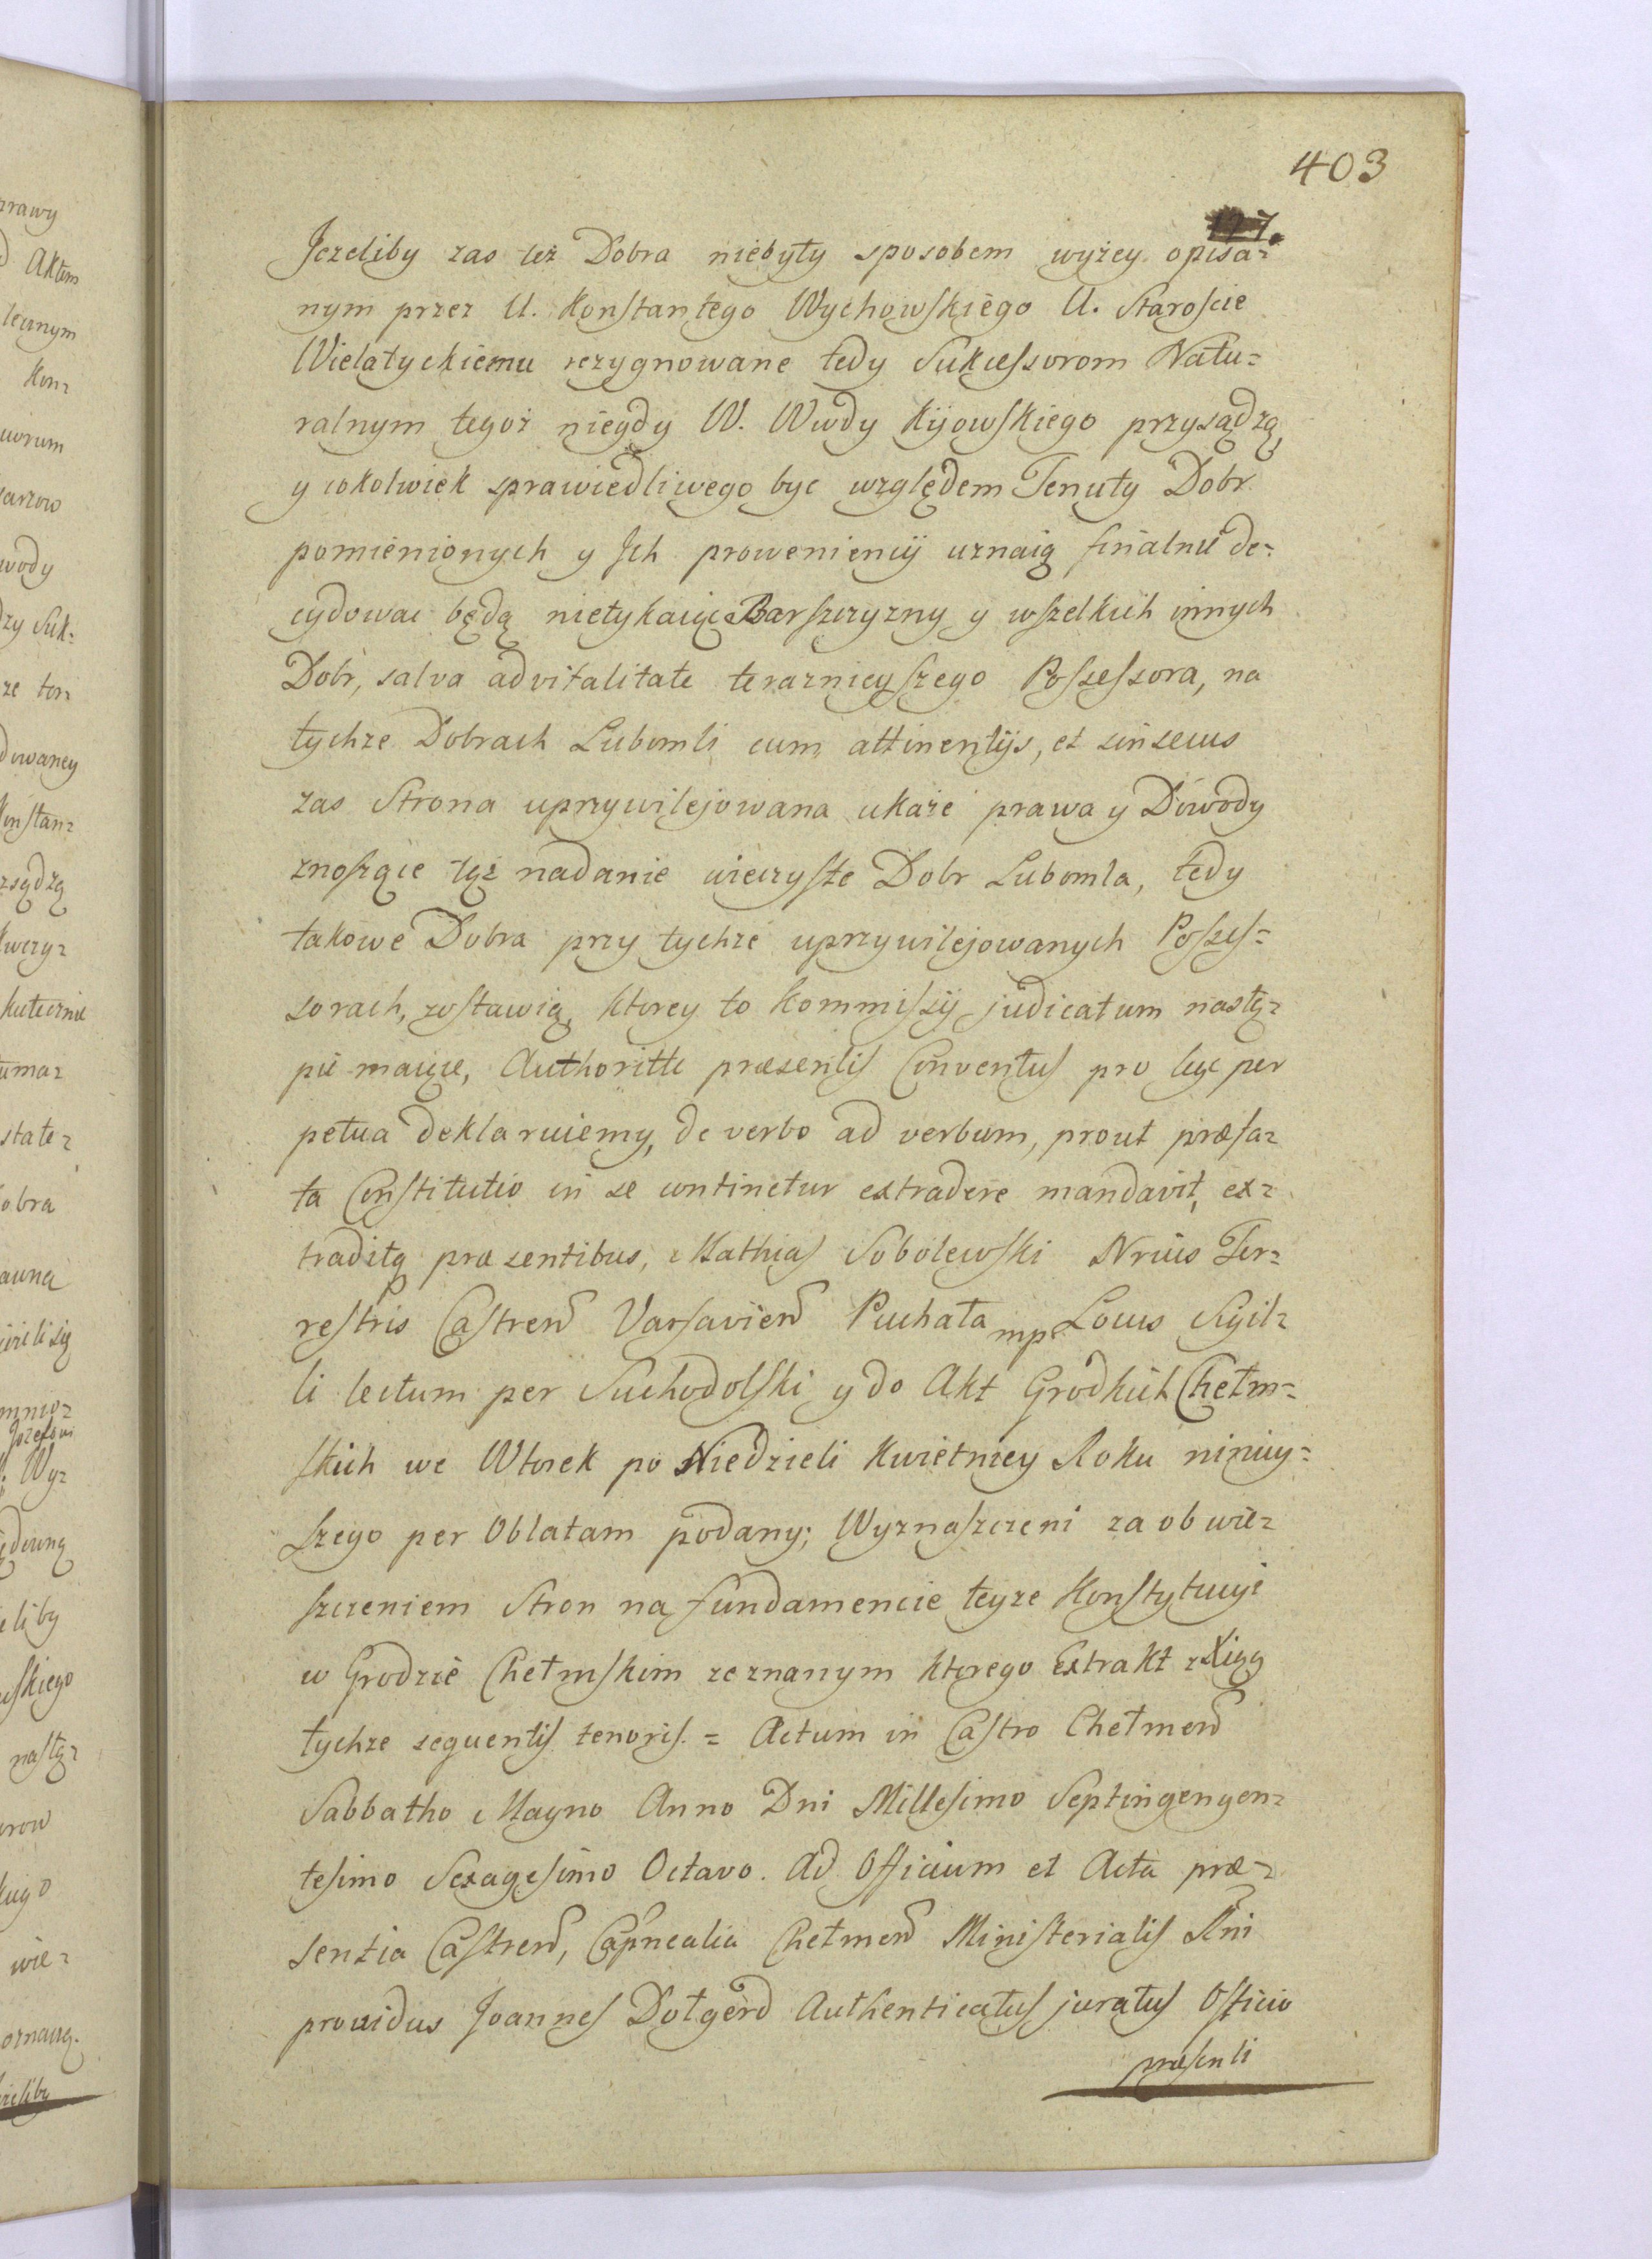 403
Jezeliby zas też Dobra niebyły sposobem wyżey opisa=
nym przez U. Konstantego Wychowskiego U. Staroscie
Wielatyckiemu rezygnowane tedy Sukcessorom Natu=
ralnym tegoż niegdy W. Wwdy Kijowskiego przysądzą
y cokolwiek sprawiedliwego byc względem Tenuty Dobr
pomienionych y Jch proweniencij uznaią finalnie de=
cydowac będą nietykaiąc Barszczyzny y wszelkich innych
Dobr, salva advitalitate teraznieyszego Possessora, na
tychze Dobrach Lubomli cum attinentijs, et sinsecus
zas Strona uprzywilejowana ukaże prawa y Dowody
znoszące też nadanie wieczyste Dobr Lubomla, tedy
takowe Dobra przy tychże uprzywilejowanych Posses=
sorach, zostawią, ktorey to Kommissij judicatum nastę=
pie maiące, Authoritte præsentis Conventus pro lege per
petua deklaruiemy, de verbo ad verbum, prout præfa=
ta Constitutio in se continetur extradere mandavit, ex=
tradita præsentibus, Mathias Sobolewski Nrius Ter=
restris Castren Varsavien Puchała mp Locus Sigil=
li lectum per Suchodolski y do Akt Grodkich Chełm=
skich we Wtorek po Niedzieli Kwietney Roku niniey=
szego per Oblatam podany; Wyznaszczeni za obwie=
szczeniem Stron na fundamencie teyze Konstytucyi
w Grodzie Chełmskim zeznanym ktorego Extrakt z Xiąg
tychze sequentis tenoris. = Actum in Castro Chełmen
Sabbatho Magno Anno Dni Millesimo Septingengen=
tesimo Sexagesimo Octavo. Ad Officium et Acta præ=
sentia Castren, Capnealia Chełmen Ministerialis Rni
providus Joannes Dołgerd Authenticatus juratus Officio
præsenti